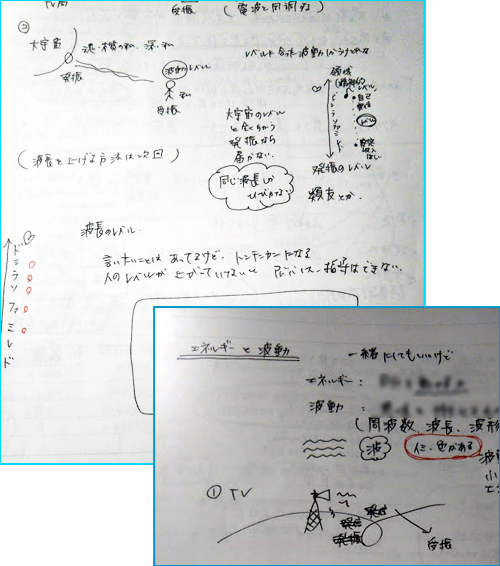 TV局
受振
(電波と同調する)
②
大宇宙
発振
波動のレベル
受振
レベルに合った波動しかうけとれない
領域
(精神的)
レベル
自己
ド
シ
ラ
ソ
ファ
ミ
レ
ド
発振のレベル
類友とか、
大宇宙のレベル
と全くちがう
発振なら
届かない。
同じ波長しか
ひびかない
(波長を上げる方法は次回)
波長のレベル
言いたいことは あってるけど、トンチンカンになる
人のレベルが 上がっていけないと アドバイス・指導はできない。
ド
シ
ラ
ソ
ファ
ミ
レ
ド
エネルギーと波動
一緒にしてもいいけど
エネルギー:
波動:
(周波数、波長、波形
波
色がある
① TV
発信
発振
受振